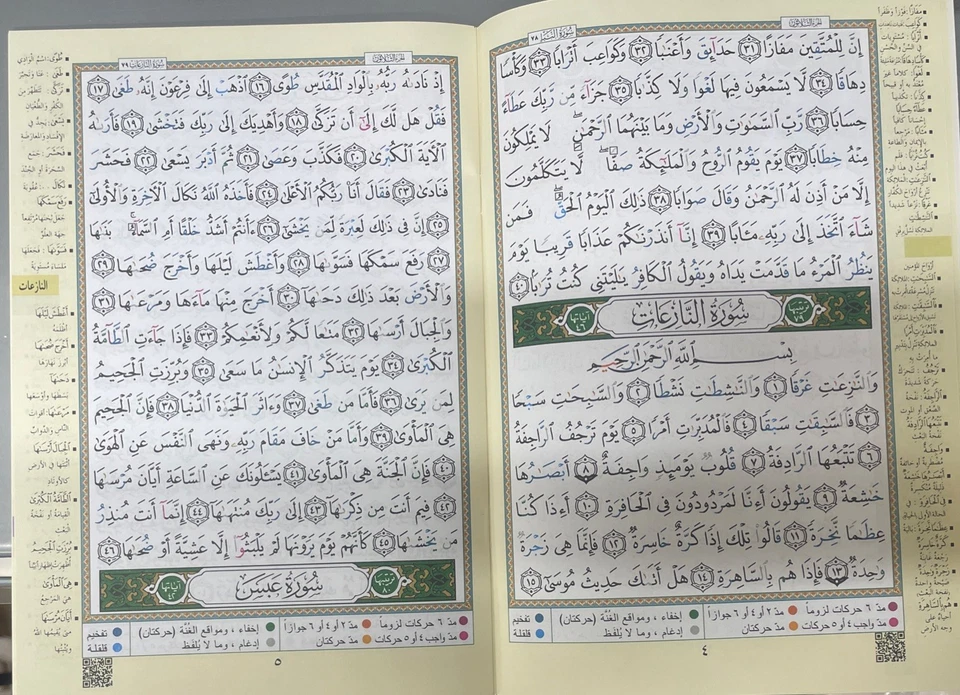 الجزء الثلاثون
سورة النبأ ٧٨
إِنَّ لِلْمُتَّقِينَ مَفَازًا ٣١ حَدَآئِقَ وَأَعْنَٰبًا ٣٢ وَكَوَاعِبَ أَتْرَابًا ٣٣ وَكَأْسًا
دِهَاقًا ٣٤ لَّا يَسْمَعُونَ فِيهَا لَغْوًا وَلَا كِذَّٰبًا ٣٥ جَزَآءً مِّن رَّبِّكَ عَطَآءً
حِسَابًا ٣٦ رَّبِّ ٱلسَّمَٰوَٰتِ وَٱلْأَرْضِ وَمَا بَيْنَهُمَا ٱلرَّحْمَٰنِ ۖ لَا يَمْلِكُونَ
مِنْهُ خِطَابًا ٣٧ يَوْمَ يَقُومُ ٱلرُّوحُ وَٱلْمَلَٰٓئِكَةُ صَفًّا ۖ لَّا يَتَكَلَّمُونَ
إِلَّا مَنْ أَذِنَ لَهُ ٱلرَّحْمَٰنُ وَقَالَ صَوَابًا ٣٨ ذَٰلِكَ ٱلْيَوْمُ ٱلْحَقُّ ۖ فَمَن
شَآءَ ٱتَّخَذَ إِلَىٰ رَبِّهِۦ مَـَٔابًا ٣٩ إِنَّآ أَنذَرْنَٰكُمْ عَذَابًا قَرِيبًا يَوْمَ
يَنظُرُ ٱلْمَرْءُ مَا قَدَّمَتْ يَدَاهُ وَيَقُولُ ٱلْكَافِرُ يَٰلَيْتَنِى كُنتُ تُرَٰبًۢا ٤٠
ترتيبها ٧٩ سُورَةُ النَّازِعَاتِ آياتها ٤٦
بِسْمِ ٱللَّهِ ٱلرَّحْمَٰنِ ٱلرَّحِيمِ
وَٱلنَّٰزِعَٰتِ غَرْقًا ١ وَٱلنَّٰشِطَٰتِ نَشْطًا ٢ وَٱلسَّٰبِحَٰتِ سَبْحًا
٣ فَٱلسَّٰبِقَٰتِ سَبْقًا ٤ فَٱلْمُدَبِّرَٰتِ أَمْرًا ٥ يَوْمَ تَرْجُفُ ٱلرَّاجِفَةُ
٦ تَتْبَعُهَا ٱلرَّادِفَةُ ٧ قُلُوبٌ يَوْمَئِذٍ وَاجِفَةٌ ٨ أَبْصَٰرُهَا
خَٰشِعَةٌ ٩ يَقُولُونَ أَءِنَّا لَمَرْدُودُونَ فِى ٱلْحَافِرَةِ ١٠ أَءِذَا كُنَّا
عِظَٰمًا نَّخِرَةً ١١ قَالُوا۟ تِلْكَ إِذًا كَرَّةٌ خَاسِرَةٌ ١٢ فَإِنَّمَا هِىَ زَجْرَةٌ
وَٰحِدَةٌ ١٣ فَإِذَا هُم بِٱلسَّاهِرَةِ ١٤ هَلْ أَتَىٰكَ حَدِيثُ مُوسَىٰٓ ١٥
مدّ ٦ حركات لزوماً مدّ ٢ أو ٤ أو ٦ جوازاً إخفاء ، ومواقع الغُنَّة (حركتان) تفخيم
مدّ واجب ٤ أو ٥ حركات مدّ حركتان إدغام ، وما لا يُلفظ قلقلة
٤
الجزء الثلاثون
سورة النازعات ٧٩
إِذْ نَادَىٰهُ رَبُّهُۥ بِٱلْوَادِ ٱلْمُقَدَّسِ طُوًى ١٦ ٱذْهَبْ إِلَىٰ فِرْعَوْنَ إِنَّهُۥ طَغَىٰ ١٧
فَقُلْ هَل لَّكَ إِلَىٰٓ أَن تَزَكَّىٰ ١٨ وَأَهْدِيَكَ إِلَىٰ رَبِّكَ فَتَخْشَىٰ ١٩ فَأَرَىٰهُ
ٱلْءَايَةَ ٱلْكُبْرَىٰ ٢٠ فَكَذَّبَ وَعَصَىٰ ٢١ ثُمَّ أَدْبَرَ يَسْعَىٰ ٢٢ فَحَشَرَ
فَنَادَىٰ ٢٣ فَقَالَ أَنَا۠ رَبُّكُمُ ٱلْأَعْلَىٰ ٢٤ فَأَخَذَهُ ٱللَّهُ نَكَالَ ٱلْءَاخِرَةِ وَٱلْأُولَىٰٓ
٢٥ إِنَّ فِى ذَٰلِكَ لَعِبْرَةً لِّمَن يَخْشَىٰٓ ٢٦ ءَأَنتُمْ أَشَدُّ خَلْقًا أَمِ ٱلسَّمَآءُ ۚ بَنَىٰهَا
٢٧ رَفَعَ سَمْكَهَا فَسَوَّىٰهَا ٢٨ وَأَغْطَشَ لَيْلَهَا وَأَخْرَجَ ضُحَىٰهَا ٢٩
وَٱلْأَرْضَ بَعْدَ ذَٰلِكَ دَحَىٰهَآ ٣٠ أَخْرَجَ مِنْهَا مَآءَهَا وَمَرْعَىٰهَا ٣١
وَٱلْجِبَالَ أَرْسَىٰهَا ٣٢ مَتَٰعًا لَّكُمْ وَلِأَنْعَٰمِكُمْ ٣٣ فَإِذَا جَآءَتِ ٱلطَّآمَّةُ
ٱلْكُبْرَىٰ ٣٤ يَوْمَ يَتَذَكَّرُ ٱلْإِنسَٰنُ مَا سَعَىٰ ٣٥ وَبُرِّزَتِ ٱلْجَحِيمُ
لِمَن يَرَىٰ ٣٦ فَأَمَّا مَن طَغَىٰ ٣٧ وَءَاثَرَ ٱلْحَيَوٰةَ ٱلدُّنْيَا ٣٨ فَإِنَّ ٱلْجَحِيمَ
هِىَ ٱلْمَأْوَىٰ ٣٩ وَأَمَّا مَنْ خَافَ مَقَامَ رَبِّهِۦ وَنَهَى ٱلنَّفْسَ عَنِ ٱلْهَوَىٰ
٤٠ فَإِنَّ ٱلْجَنَّةَ هِىَ ٱلْمَأْوَىٰ ٤١ يَسْـَٔلُونَكَ عَنِ ٱلسَّاعَةِ أَيَّانَ مُرْسَىٰهَا
٤٢ فِيمَ أَنتَ مِن ذِكْرَىٰهَآ ٤٣ إِلَىٰ رَبِّكَ مُنتَهَىٰهَآ ٤٤ إِنَّمَآ أَنتَ مُنذِرُ
مَن يَخْشَىٰهَا ٤٥ كَأَنَّهُمْ يَوْمَ يَرَوْنَهَا لَمْ يَلْبَثُوٓا۟ إِلَّا عَشِيَّةً أَوْ ضُحَىٰهَا ٤٦
ترتيبها ٨٠ سُورَةُ عَبَسَ آياتها ٤٢
النازعات
مدّ ٦ حركات لزوماً مدّ ٢ أو ٤ أو ٦ جوازاً إخفاء ، ومواقع الغُنَّة (حركتان) تفخيم
مدّ واجب ٤ أو ٥ حركات مدّ حركتان إدغام ، وما لا يُلفظ قلقلة
٥